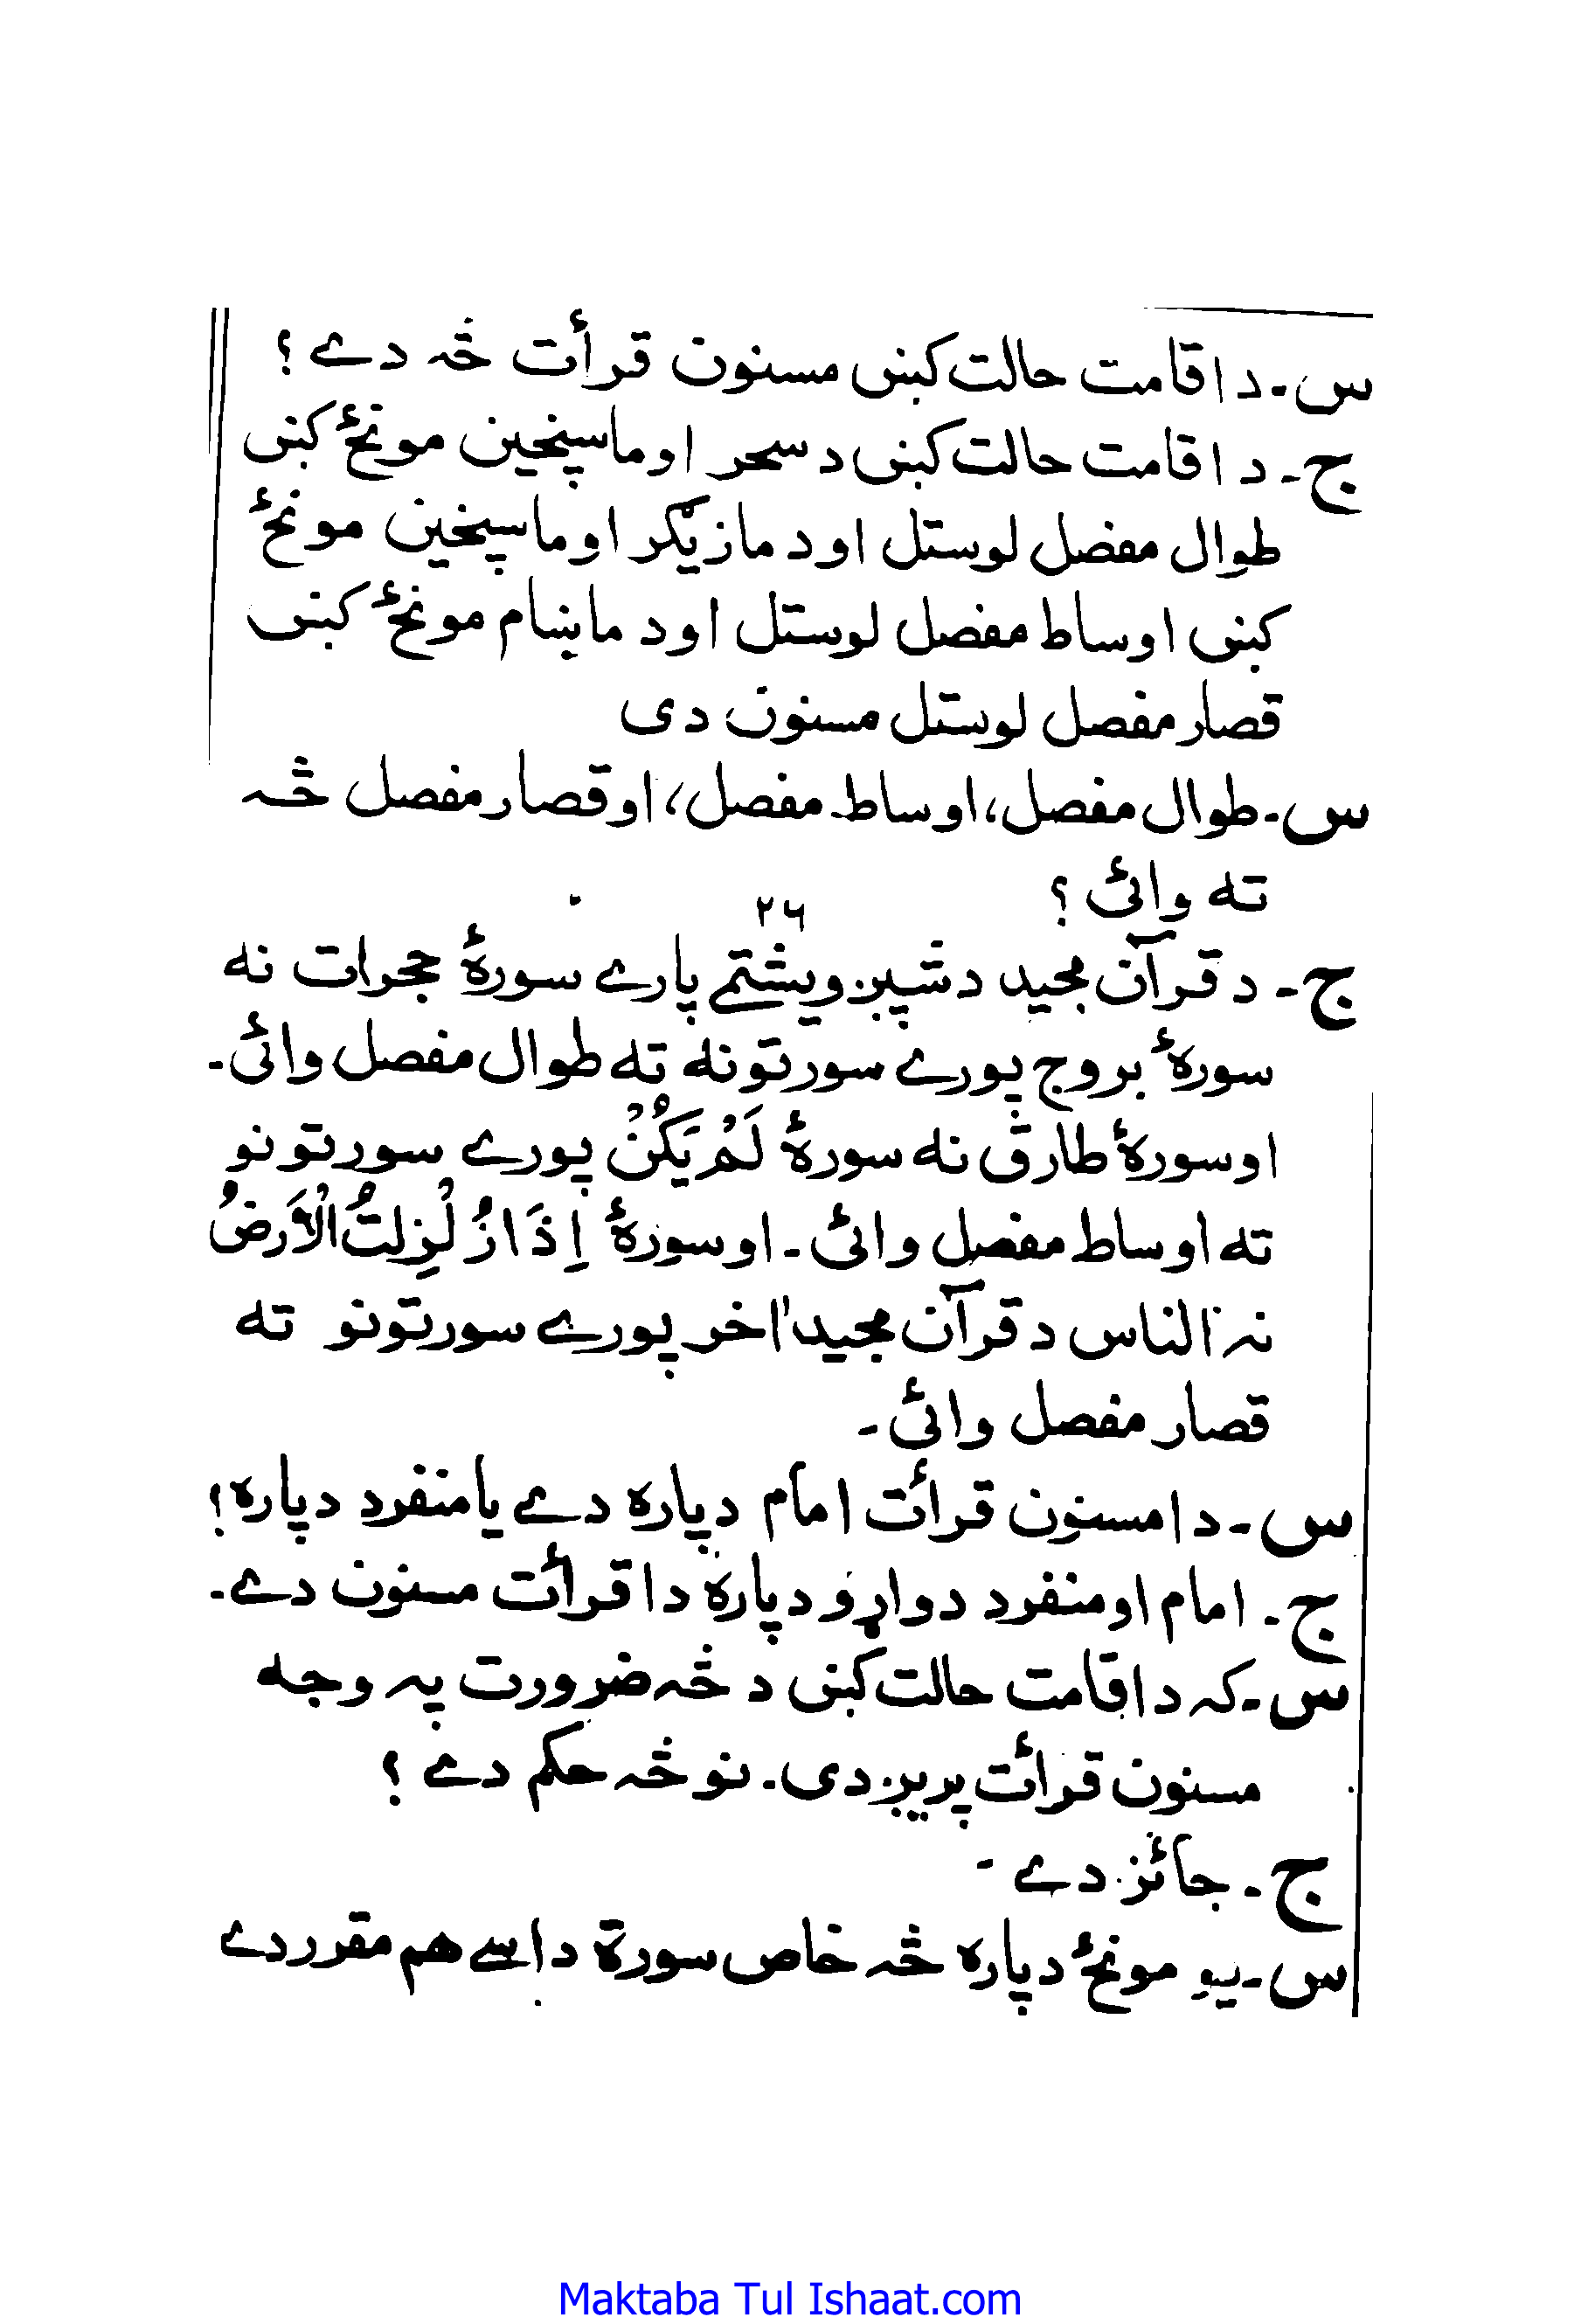 س۔ د اقامت حالت کښی مسنون قرأت څہ دے ؟
ج۔ د اقامت حالت کښی د سحر او ماسپخین مونځۂ کښی
طوال مفضل لوستل اود مازیګر او ماسپخین مونځۂ
کښی اوساط مفصل لوستل اود ماښام مونځۂ کښی
قصار مفصل لوستل مسنون دی
س۔ طوال مفصل، اوساط مفصل، او قصار مفصل څہ
ته وائی ؟
۲۶
ج۔ د قرآن مجید د شپږویشتمے پارے سورۂ حجرات نه
سورۂ بروج پورے سورتونه ته طوال مفصل وائی۔
اوسورۂ طارق نه سورۂ لَمْ یَکُنْ پورے سورتونو
ته اوساط مفصل وائی۔ اوسورۂ اِذَا زُلْزِلَتُ الْاَرضُ
نہ الناس د قرآن مجید اخر پورے سورتونو ته
قصار مفصل وائی۔
س۔ دا مسنون قرائت امام دپاره دے یا منفرد دپاره؟
ج۔ امام او منفرد دواړو دپاره دا قرأت مسنون دے۔
س۔ کہ د اقامت حالت کښی د څہ ضرورت پہ وجه
مسنون قرائت پریږدی۔ نو څہ حکم دے ؟
ج۔ جائز دے۔
س۔ یو مونځۂ دپاره څہ خاص سورة داسے هم مقرر دے
Maktaba Tul Ishaat.com